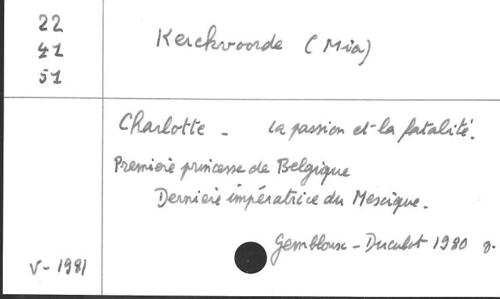 22
41
51
Kerckvoorde (Mia)
Charlotte - La passion et la fatalité.
Première princesse de Belgique
Dernière impératrice du Mexique.
Gembloux - Duculot 1980 8.
V-1981